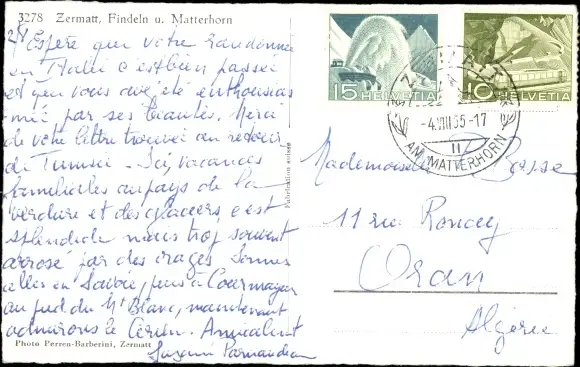 3278 Zermatt, Findeln u. Matterhorn
J'espère que votre randonnée
en Italie c'est bien passée
et que vous avez été enthousias
mée par ses beautés. Merci
de votre lettre trouvée au retour
de Tunisie. Ici, vacances
familiales au pays de la
verdure et des glaciers, c'est
splendide mais trop souvent
arrosé par des orages. Sommes
allés en Savoie, puis à Courmayeur
au pied du Mt Blanc, maintenant
admirons le Cervin. Amicalement
Photo Perren-Barberini, Zermatt
Fabrication suisse
15 HELVETIA
10 HELVETIA
ZERMATT
-4.VIII.55-17
11
AM MATTERHORN
Mademoiselle
11 rue
Oran
Algérie